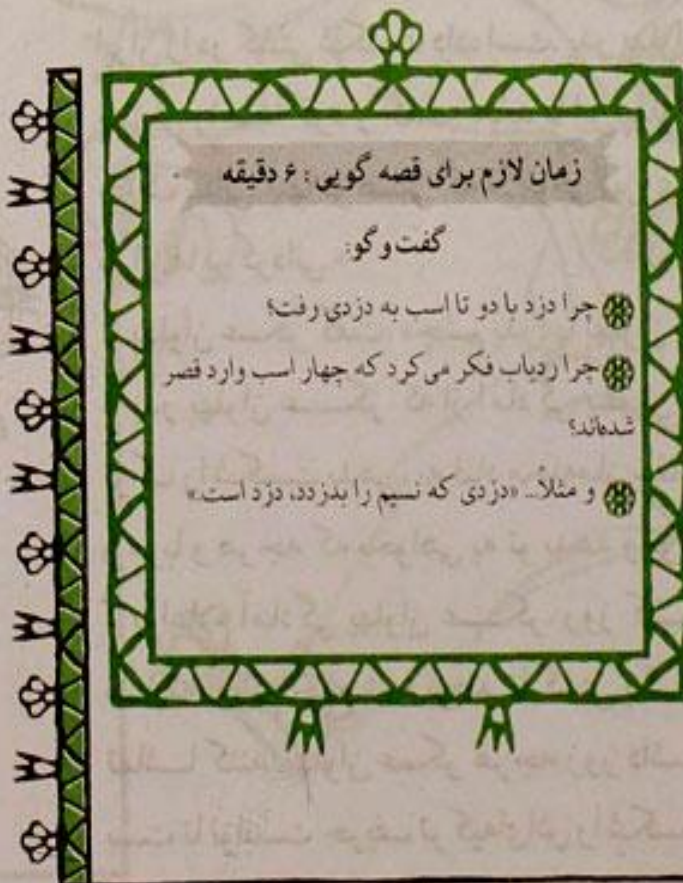 زمان لازم برای قصه گویی: ۶ دقیقه
گفت و گو:
چرا دزد با دو تا اسب به دزدی رفت؟
چرا ردیاب فکر می‌کرد که چهار اسب وارد قصر
شده‌اند؟
و مثلاً... «دزدی که نسیم را بدزدد، دزد است.»